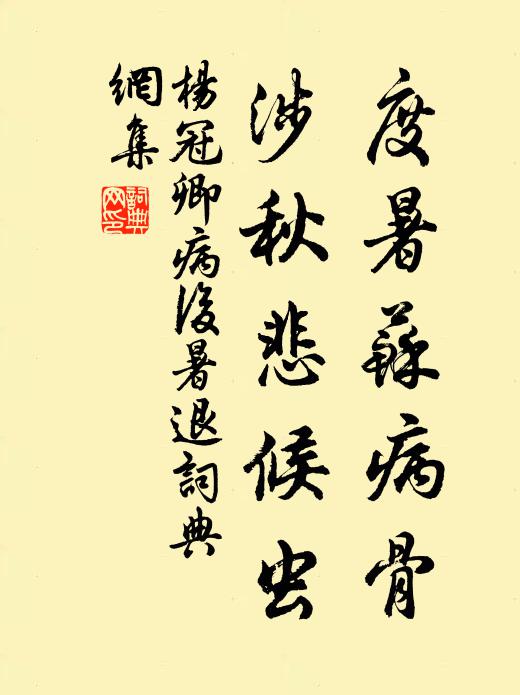 度暑蘇病骨
涉秋悲候虫
楊冠卿病後暑退詞典
網集
詞典網印